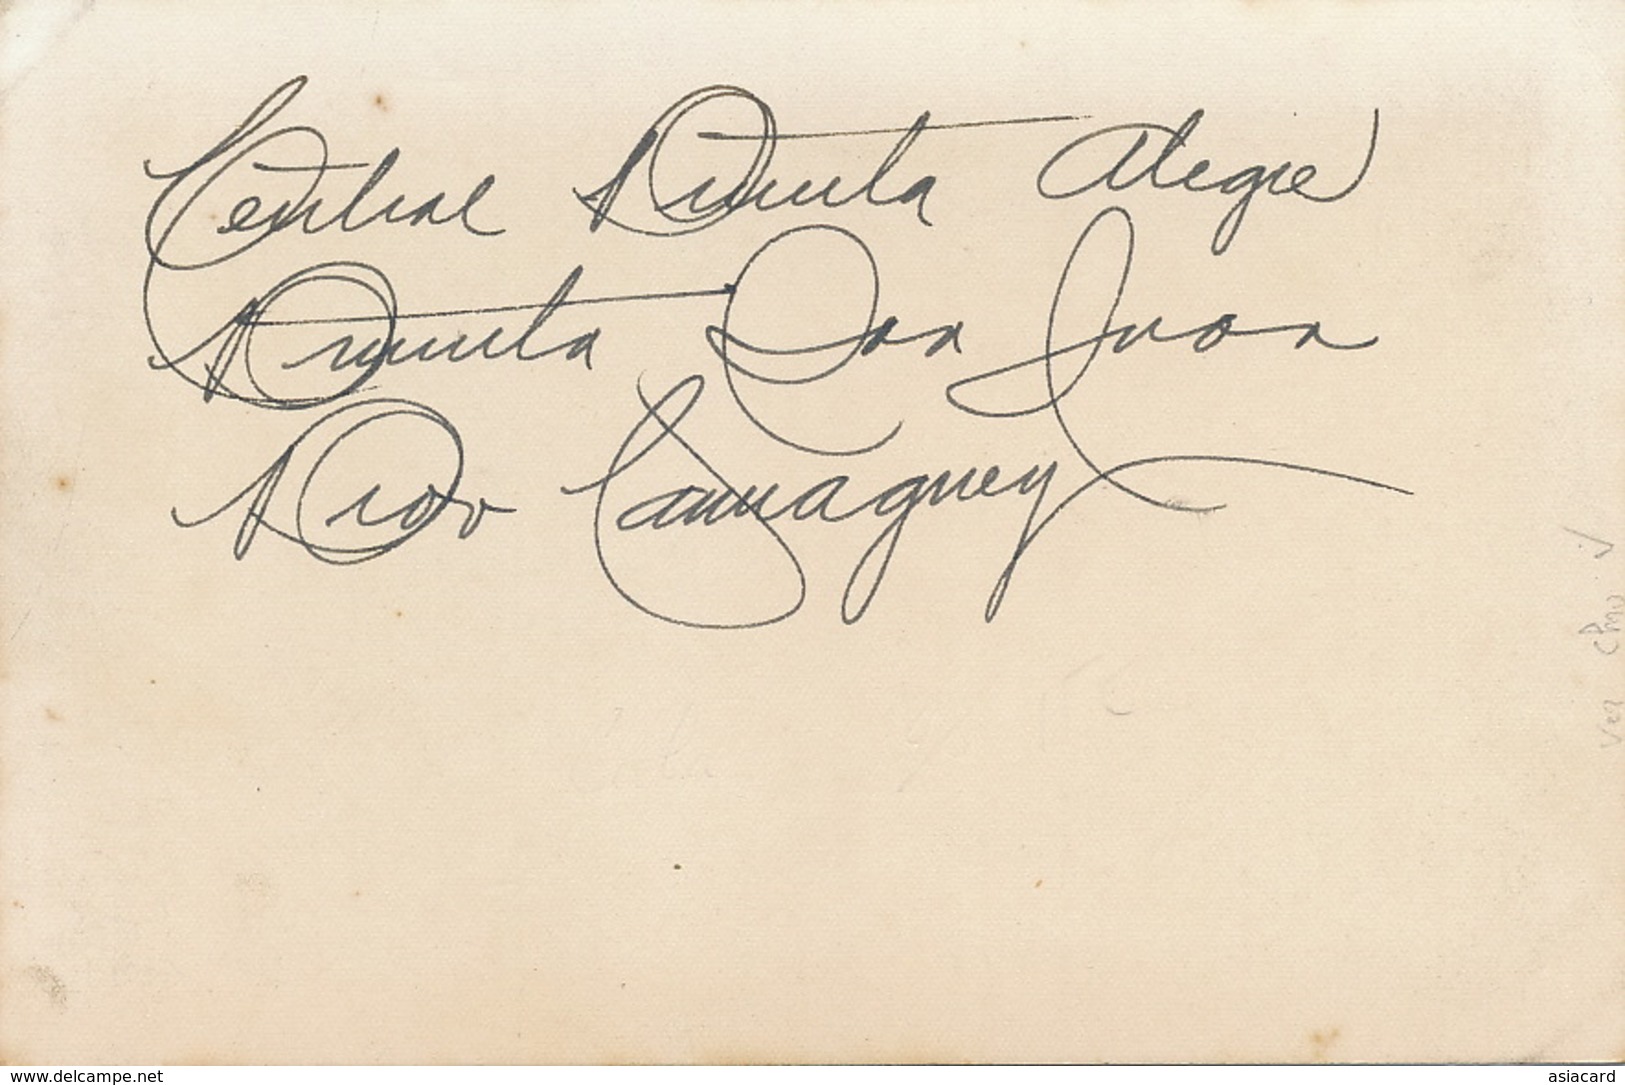 Central Punta Alegre
Punta San Juan
Prov Camaguey
www.delcampe.net
asiacard